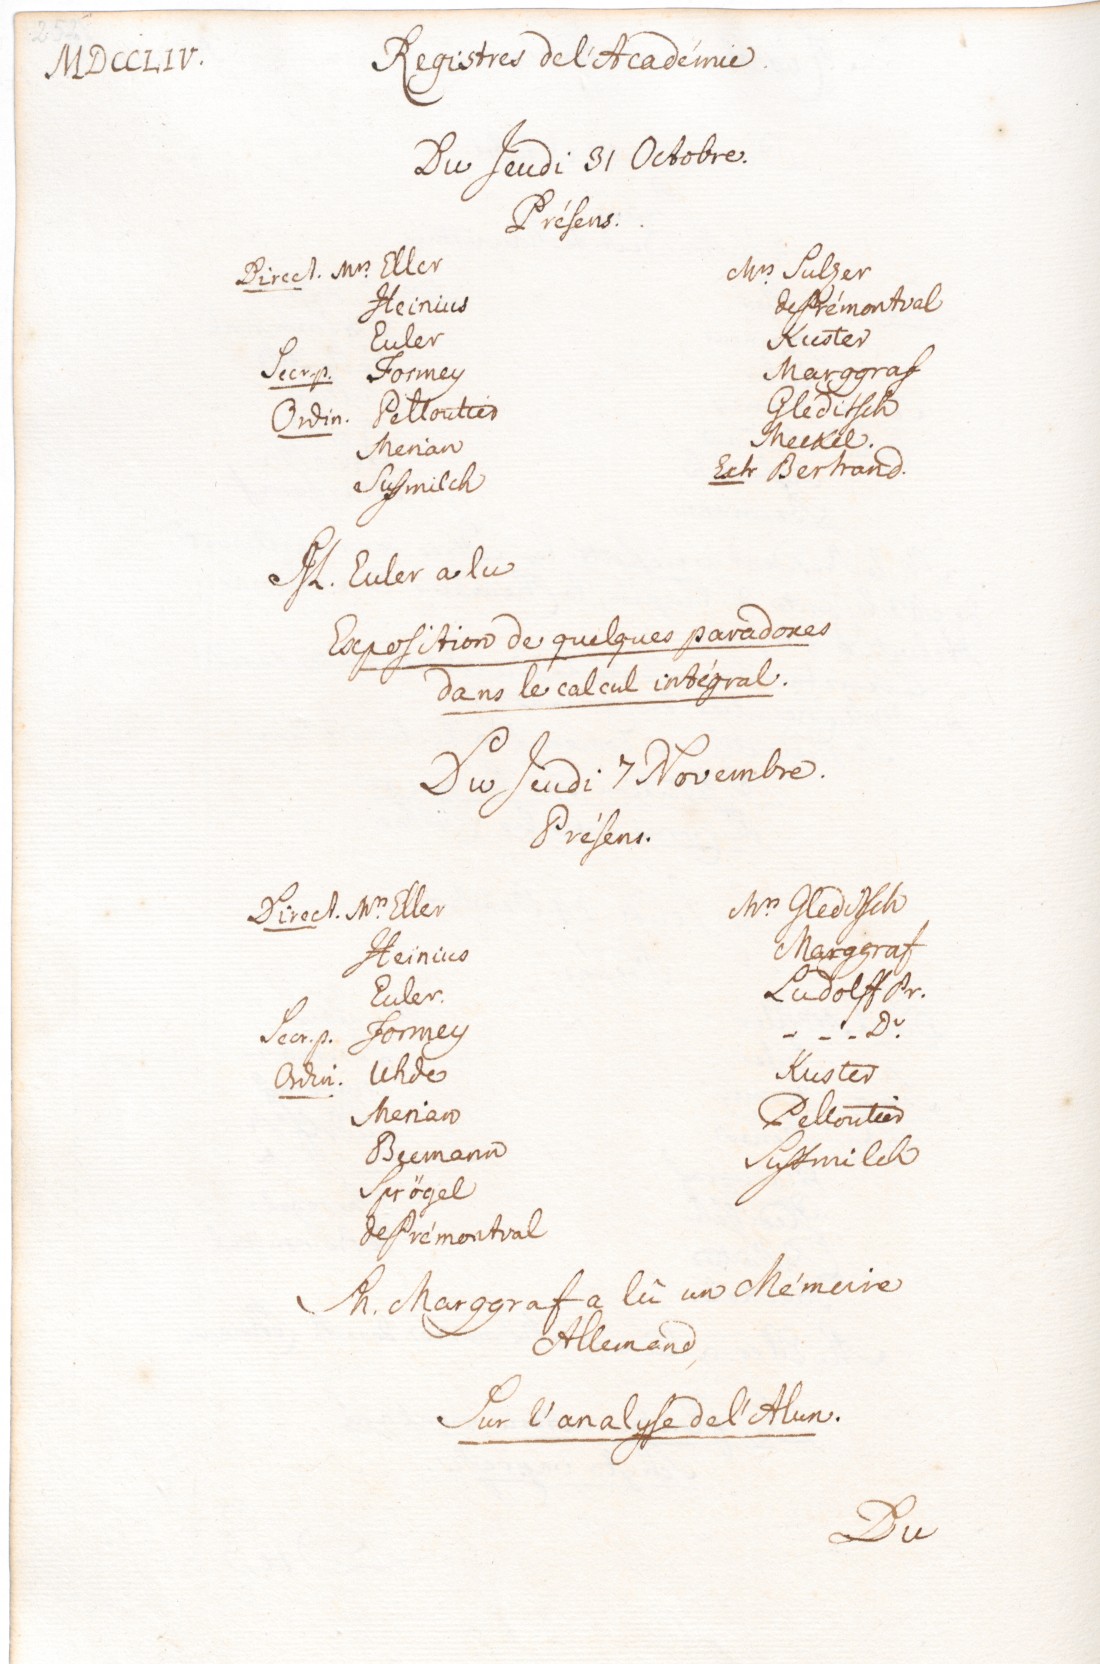 MDCCLIV.
Registres de l'Académie.
Du Jeudi 31 Octobre.
Présens.
Direct. Mrs. Eller
Heinius
Euler
Secr. p. Formey
Ordin. Pelloutier
Merian
Sussmilch
Mrs Sulzer
de Prémontval
Kuster
Marggraf
Gleditsch
Meckel.
Extr Bertrand.
M. Euler a lu
Exposition de quelques paradoxes
dans le calcul intégral.
Du Jeudi 7 Novembre.
Présens.
Direct. Mrs Eller
Heinius
Euler.
Secr. p. Formey
Ordin. Uhde
Merian
Becmann
Sprögel
de Prémontval
Mrs Gleditsch
Marggraf
Ludolff Pr.
- - - Dr.
Kuster
Pelloutier
Sussmilch
M. Marggraf a lû un Mémoire
Allemand,
Sur l'analyse de l'Alun.
Du